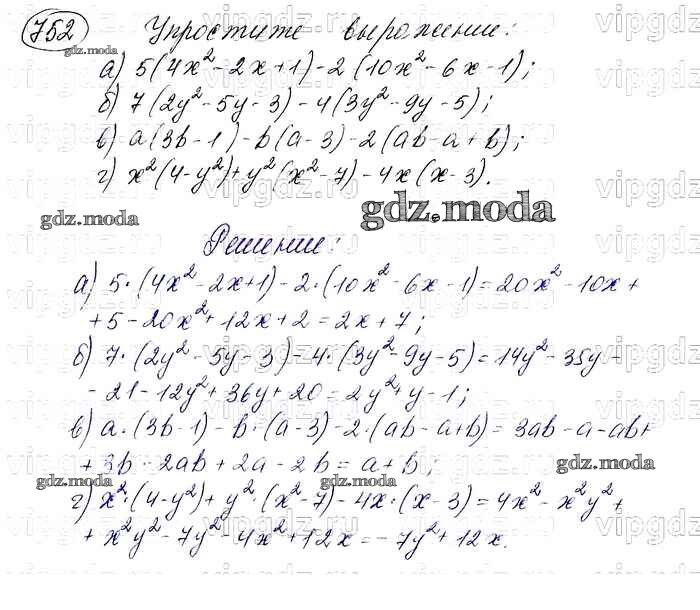 752 Упростите выражение:
а) 5(4x²-2x+1)-2(10x²-6x-1);
б) 7(2y²-5y-3)-4(3y²-9y-5);
в) a(3b-1)-b(a-3)-2(ab-a+b);
г) x²(4-y²)+y²(x²-7)-4x(x-3).
gdz.moda
Решение:
а) 5·(4x²-2x+1)-2·(10x²-6x-1)=20x²-10x+
+5-20x²+12x+2=2x+7;
б) 7·(2y²-5y-3)-4·(3y²-9y-5)=14y²-35y-
-21-12y²+36y+20=2y²+y-1;
в) a·(3b-1)-b·(a-3)-2·(ab-a+b)=3ab-a-ab+
+3b-2ab+2a-2b=a+b;
г) x²·(4-y²)+y²·(x²-7)-4x·(x-3)=4x²-x²y²+
+x²y²-7y²-4x²+12x=-7y²+12x.